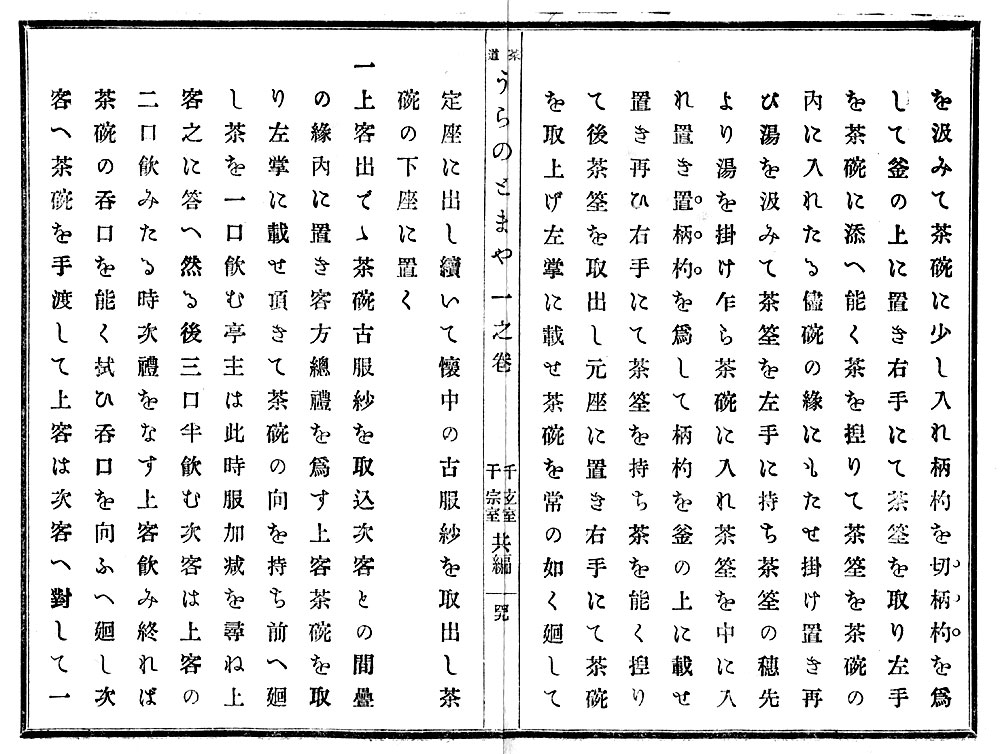 を汲みて茶碗に少し入れ柄杓を切柄杓を爲
して釜の上に置き右手にて茶筌を取り左手
を茶碗に添へ能く茶を揑りて茶筌を茶碗の
内に入れたる儘碗の緣にもたせ掛け置き再
び湯を汲みて茶筌を左手に持ち茶筌の穗先
より湯を掛け乍ら茶碗に入れ茶筌を中に入
れ置き置柄杓を爲して柄杓を釜の上に載せ
置き再ひ右手にて茶筌を持ち茶を能く揑り
て後茶筌を取出し元座に置き右手にて茶碗
を取上げ左掌に載せ茶碗を常の如く廻して
茶道
うらのとまや 一之卷
千玄室
千宗室
共編
定座に出し續いて懷中の古服紗を取出し茶
碗の下座に置く
一上客出でゝ茶碗古服紗を取込次客との間疊
の緣內に置き客方總禮を爲す上客茶碗を取
り左掌に載せ頂きて茶碗の向を持ち前へ廻
し茶を一口飮む亭主は此時服加減を尋ね上
客之に答へ然る後三口半飮む次客は上客の
二口飮みたる時次禮をなす上客飮み終れば
茶碗の呑口を能く拭ひ呑口を向ふへ廻し次
客へ茶碗を手渡して上客は次客へ對して一